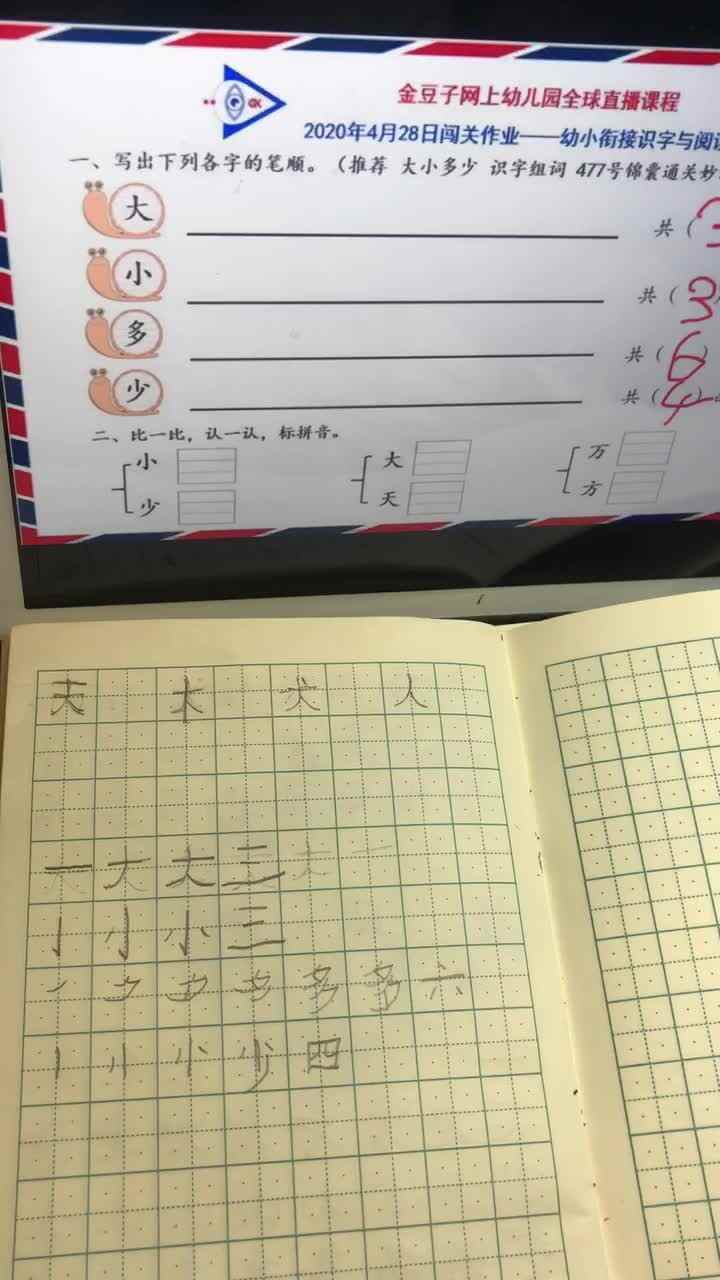 金豆子网上幼儿园全球直播课程
2020年4月28日闯关作业——幼小衔接识字与阅
一、写出下列各字的笔顺。（推荐 大小多少 识字组词 477号锦囊通关妙
大 共（3
小 共（3）
多 共（6）
少 共（4）
二、比一比，认一认，标拼音。
小 大 万
少 天 方
天 木 犬 人
一 ナ 大 三
亅 小 小 三
丿 ク 夕 多 多 多 六
丨 小 小 少 四